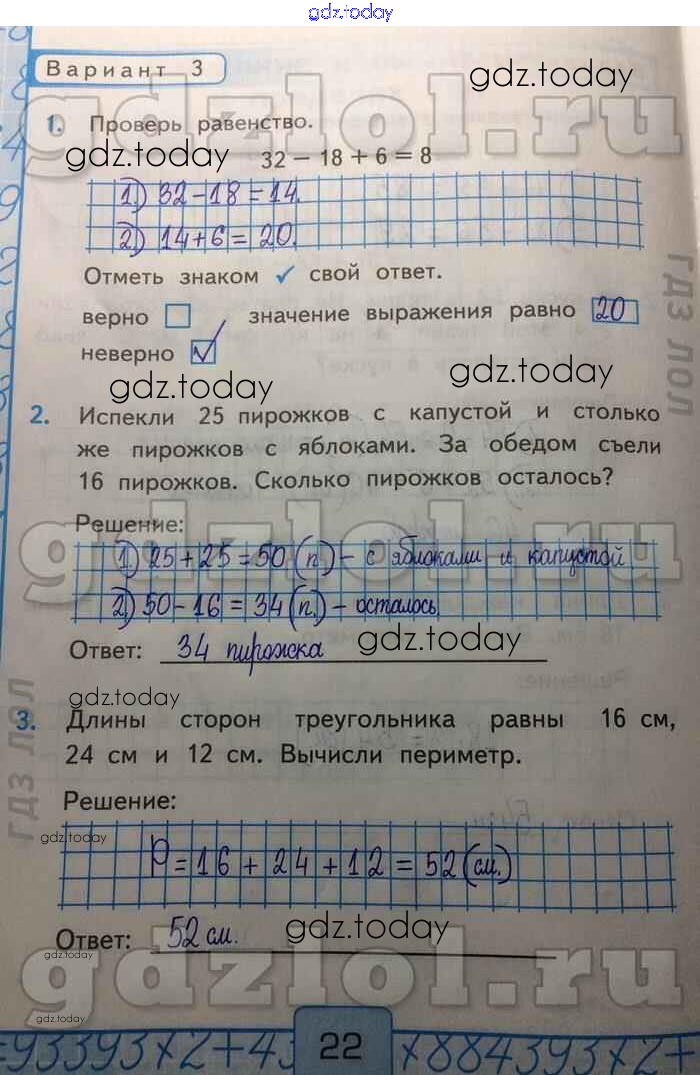 gdz.today
Вариант 3
gdz.today
gdzlol.ru
1. Проверь равенство.
gdz.today
32 − 18 + 6 = 8
1) 32-18=14.
2) 14+6=20.
Отметь знаком ✓ свой ответ.
верно значение выражения равно 20
неверно ✓
гдз лол
gdz.today gdz.today
2. Испекли 25 пирожков с капустой и столько
же пирожков с яблоками. За обедом съели
16 пирожков. Сколько пирожков осталось?
Решение:
gdzlol.ru
1) 25+25=50 (п.) – с яблоками и капустой
2) 50-16=34 (п.) – осталось
Ответ: 34 пирожка
gdz.today
gdz.today
гдз лол
3. Длины сторон треугольника равны 16 см,
24 см и 12 см. Вычисли периметр.
Решение:
gdz.today
P=16+24+12=52 (см.)
Ответ: 52 см.
gdz.today
gdz.today
gdzlol.ru
gdz.today
=93393x2+43 22 x884393x2+